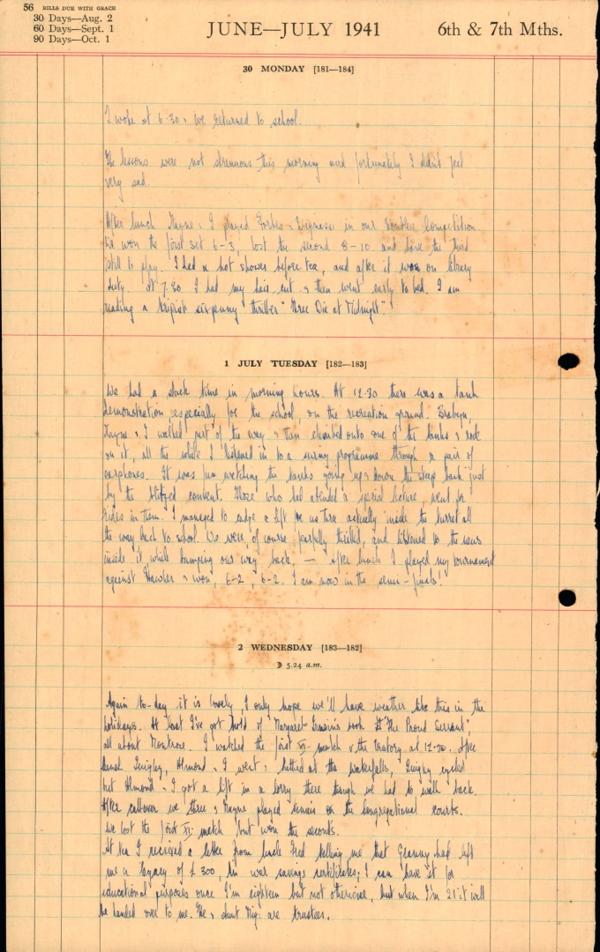 56 BILLS DUE WITH GRACE
30 Days—Aug. 2
60 Days—Sept. 1
90 Days—Oct. 1
JUNE—JULY 1941
6th & 7th Mths.
30 MONDAY [181—184]
I woke at 6.30 & we returned to school.
The lessons were not strenuous this morning and fortunately I didn't feel
very sad.
After lunch & I played Forbes & in our Doubles Competition.
We won the first set 6-3, lost the second 8-10 and have the third
still to play. I had a hot shower before tea, and after it was on library
duty. At 7.30 I had my hair cut & then went early to bed. I am
reading a sixpenny thriller "Three Die at Midnight"
1 JULY TUESDAY [182—183]
We had a slack time in morning hours. At 12-30 there was a tank
demonstration especially for the school, on the recreation ground.
& I walked part of the way & then climbed onto one of the tanks & rode
on it, all the while I listened in to a programme through a pair of
earphones. It was fun watching the tanks going up & down the steep bank just
by the blitzed convent. Those who had attended a special lecture went for
rides in them. I managed to a lift for us three actually inside the turret all
the way back to school. We were, of course thrilled, and listened to the news
inside it while bumping our way back, — After lunch I played my tournament
against & won, 6-2, 6-2. I am now in the semi-finals!
2 WEDNESDAY [183—182]
☽ 5.24 a.m.
Again to-day it is lovely, I only hope we'll have weather like this in the
holidays. At last I've got hold of Margaret Irwin's book "The Proud Servant",
all about Montrose. I watched the first XI match v the Oratory at 12-30. After
lunch Quigley, Almond & I went & bathed at the waterfalls, Quigley cycled
but Almond & I got a lift in a lorry there though we had to walk back.
After callover we three & played tennis on the Congregational courts.
We lost the first XI match but won the seconds.
At tea I received a letter from Uncle Fred telling me that Granny had left
me a legacy of £300, in war savings certificates; I can have it for
educational purposes once I'm eighteen but not otherwise, but when I'm 21 it will
be handed over to me. He & Aunt are trustees.